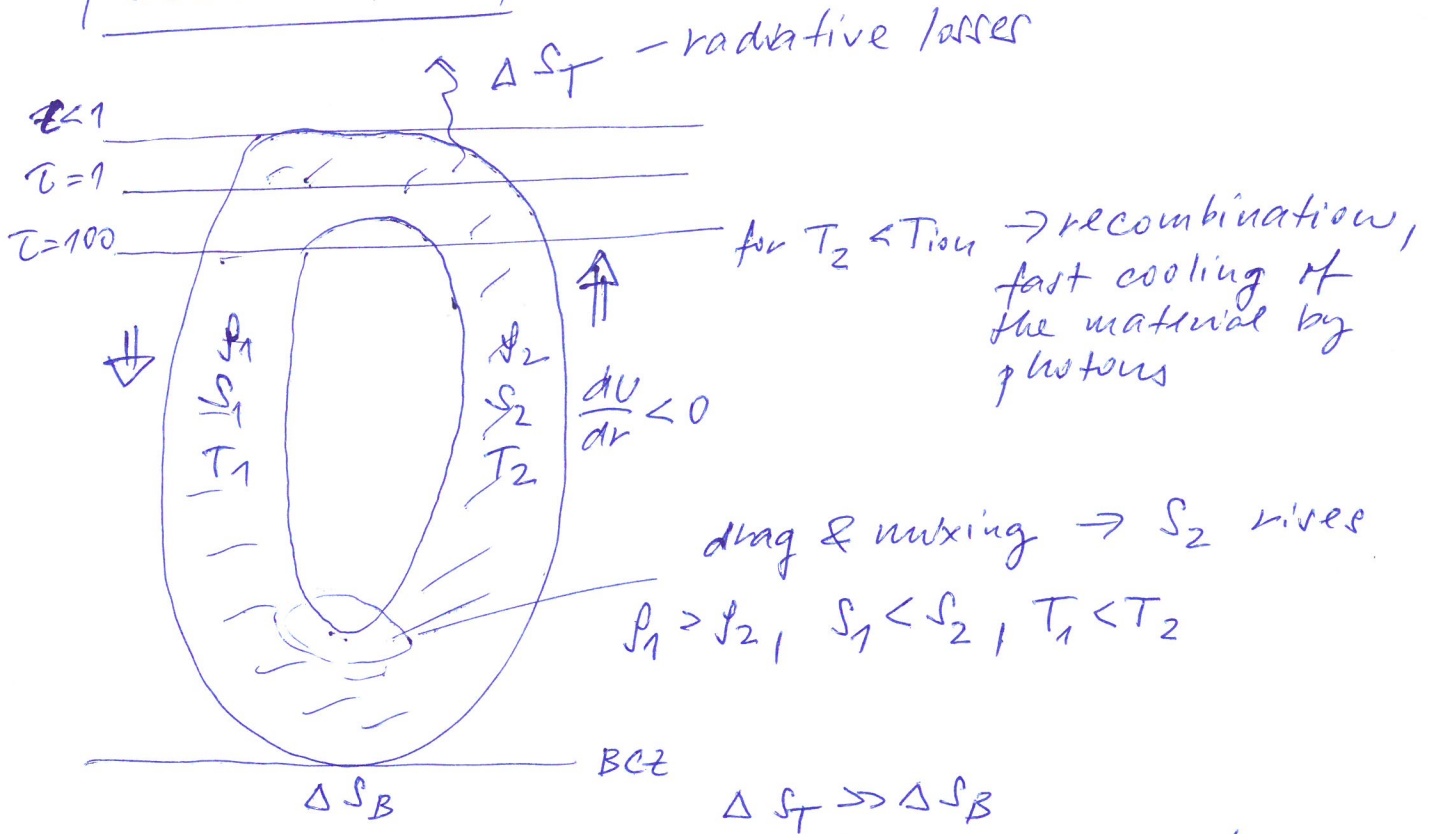 Δ S_T - radiative losses
τ<1
τ=1
τ=100
for T₂ < Tion → recombination,
fast cooling of
the material by
photons
⇓ ρ₁ ρ₂ ⇑
S₁ S₂ dU/dr < 0
T₁ T₂
drag & mixing → S₂ rises
ρ₁ > ρ₂, S₁ < S₂, T₁ < T₂
BCZ
Δ S_B
Δ S_T >> Δ S_B